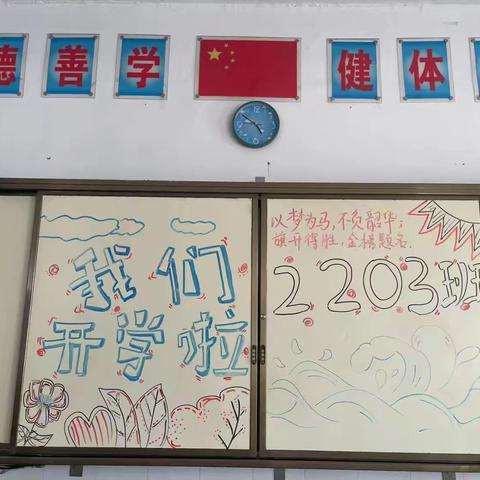 德善学
健体
我们
开学啦
以梦为马,不负韶华;
旗开得胜,金榜题名.
2203班